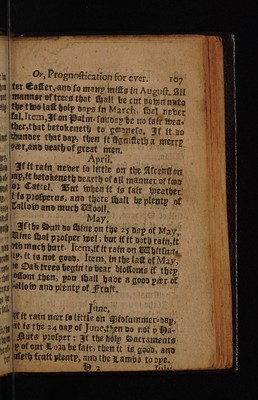 Or, Prognostication for ever. 107
ter Easter, and so many mists in August. All
manner of trees that shall be cut down unto
the two last holy days in March, shal never
fal. Item, If on Palm-sunday be no fair wea-
ther, that betokeneth to goodness. If it do
thunder that day, then it signifieth a merry
year, and death of great men.
April.
If it rain never so little on the Ascension
day, it betokeneth dearth of all manner of food
Cattel. But when it is fair weather
it is prosperus, and there shall be plenty of
Tallow and much Wooll.
May,
If the Sun do shine on the 25 day of May,
Wine shal prosper wel: but if it doth rain, it
doth much hurt. Item, if it rain on Whitsun-
it is not good. Item, in the last of May,
Oak trees begin to bear blossoms if they
blossom then, you shall have a good year of
tallow and plenty of Fruit.
June,
If it rain never so little on Midsummer-day,
that is the 24 day of June, then do not
Nuts prosper: If the holy Sacraments
day of our Lord be fair, then it is good, and
causeth fruit plenty, and the Lambs to dye.
July